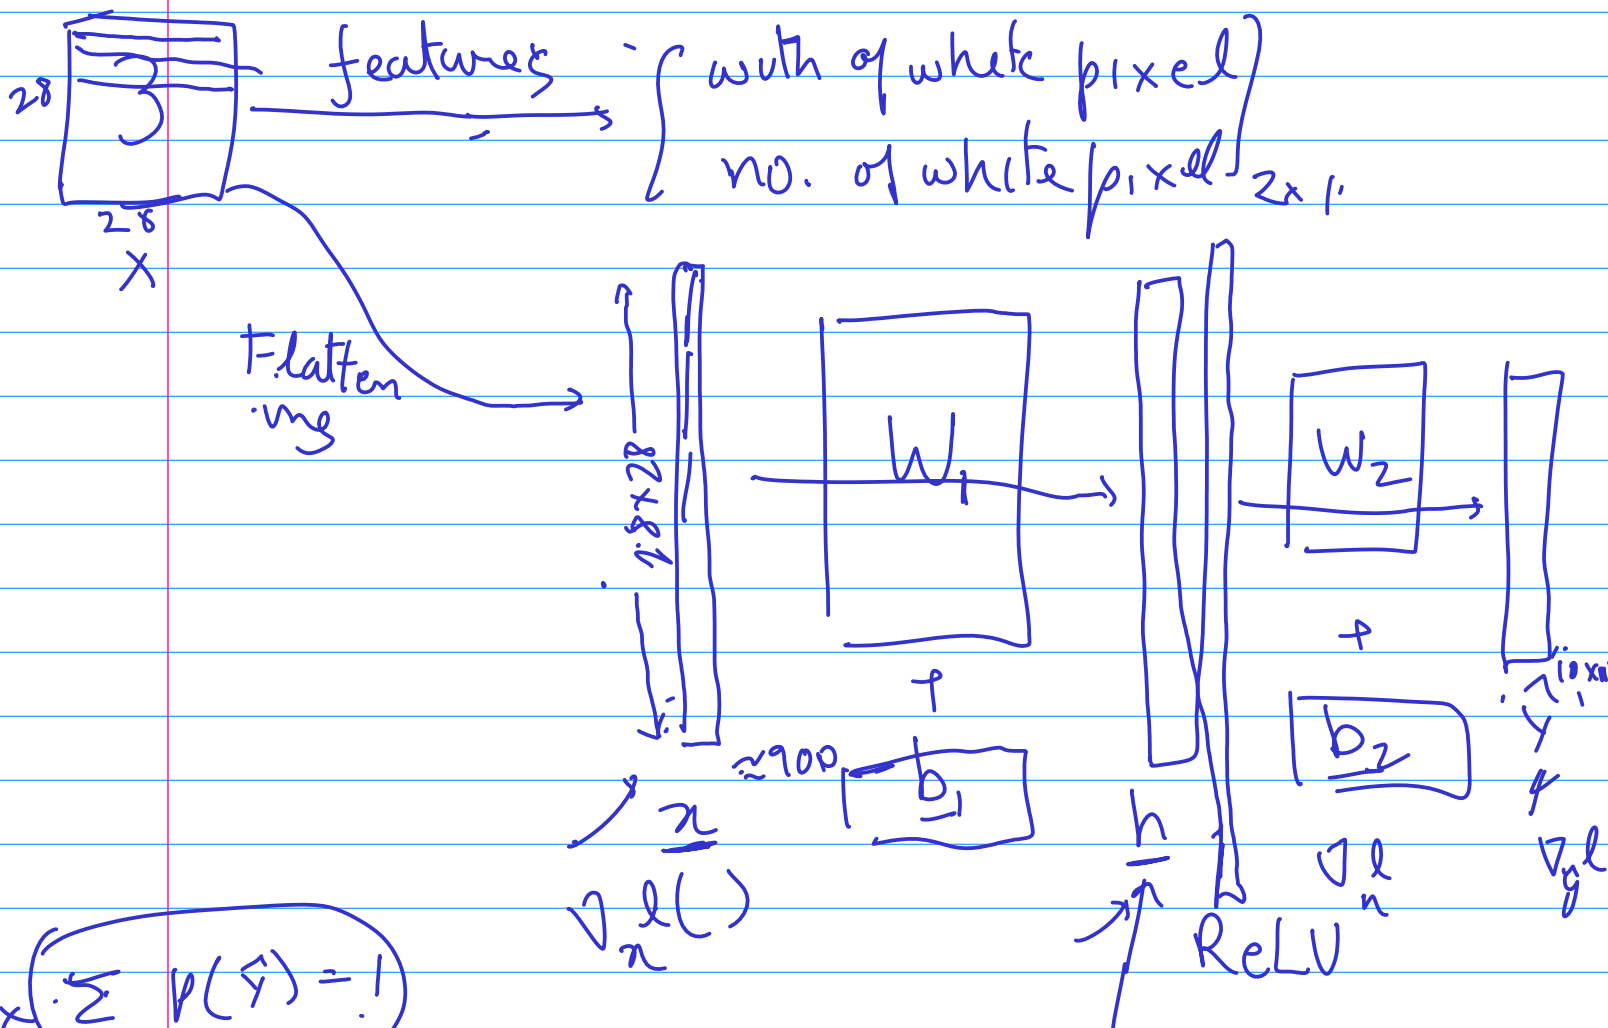 28
3
28
X
features
width of white pixel
no. of white pixel 2x1
Flatten
ing
28x28
≈900
x
∇x l( )
W1
+
b1
h
ReLU
W2
+
b2
∇h l
10x
ŷ
y
∇ŷ l
Σ p(ŷ) = 1